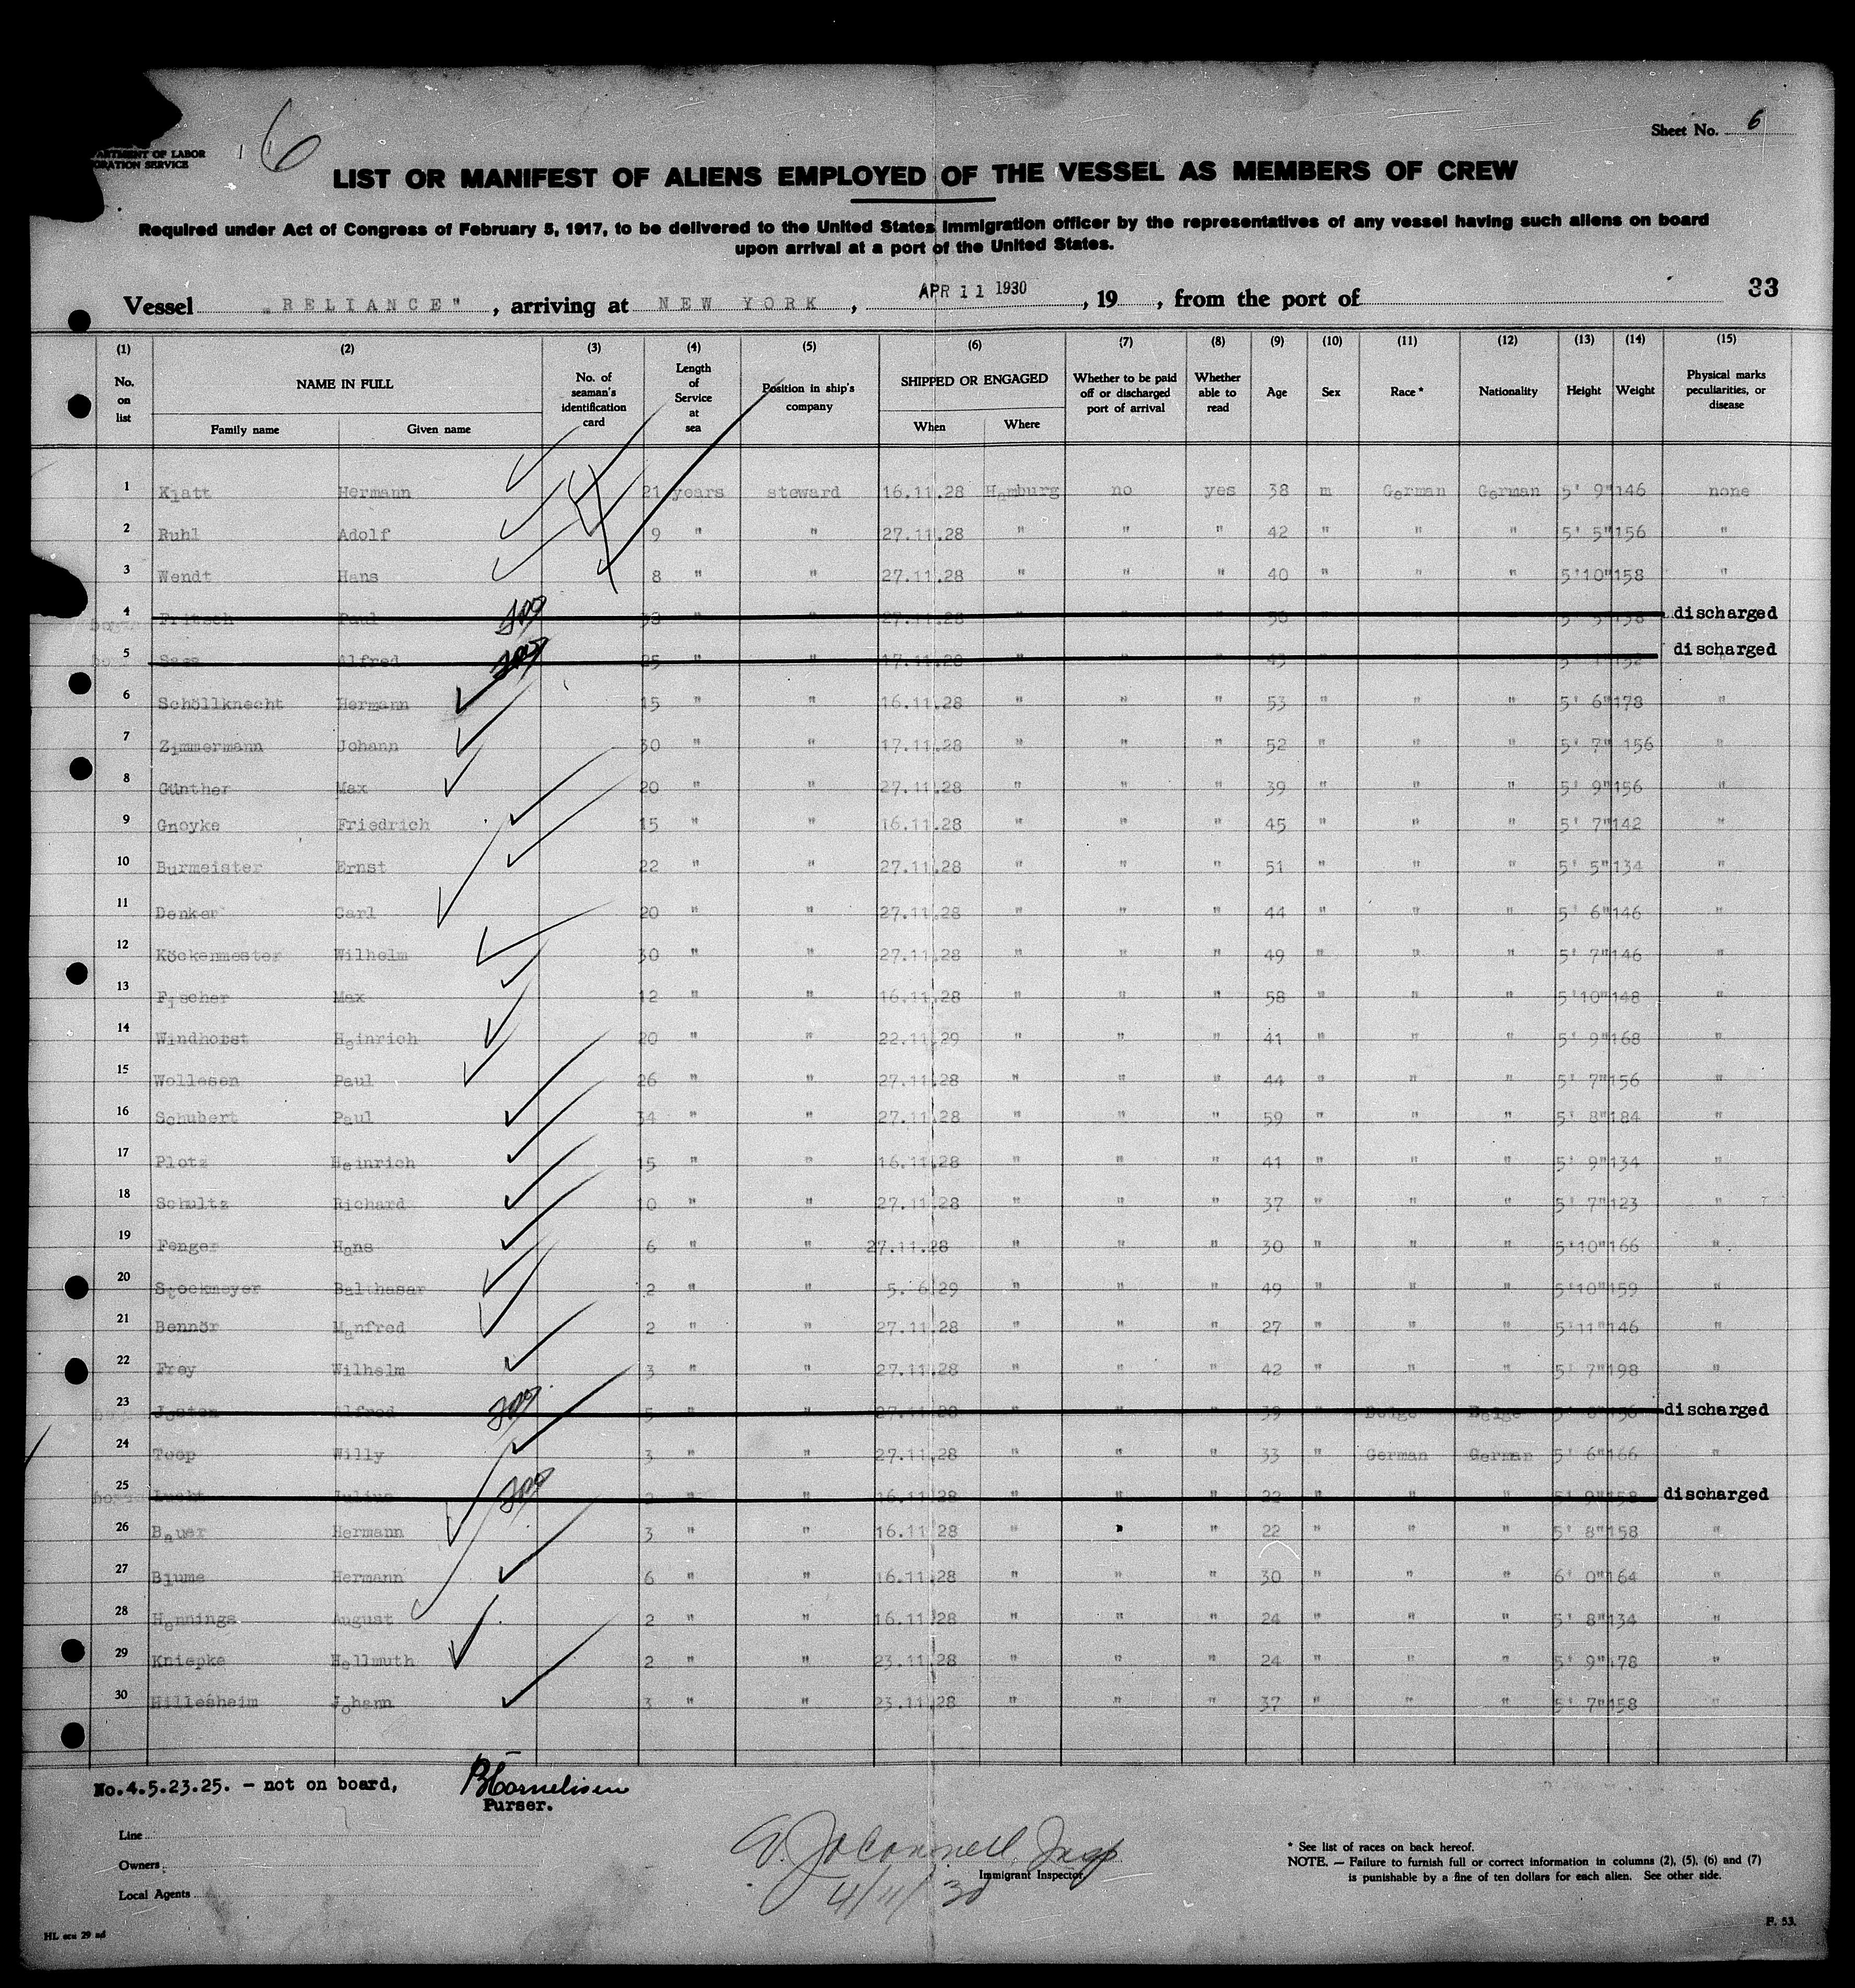 6
Sheet No. 6
ARTMENT OF LABOR
RATION SERVICE
LIST OR MANIFEST OF ALIENS EMPLOYED OF THE VESSEL AS MEMBERS OF CREW
Required under Act of Congress of February 5, 1917, to be delivered to the United States Immigration officer by the representatives of any vessel having such aliens on board
upon arrival at a port of the United States.
Vessel „RELIANCE" , arriving at NEW YORK , APR 11 1930 , 19 , from the port of 33
(1) (2) (3) (4) (5) (6) (7) (8) (9) (10) (11) (12) (13) (14) (15)
No. on list NAME IN FULL Family name Given name No. of seaman's identification card Length of Service at sea Position in ship's company SHIPPED OR ENGAGED When Where Whether to be paid off or discharged port of arrival Whether able to read Age Sex Race * Nationality Height Weight Physical marks peculiarities, or disease
1 Klatt Hermann 21 years steward 16.11.28 Hamburg no yes 38 m German German 5' 9" 146 none
2 Ruhl Adolf 9 " " 27.11.28 " " " 42 " " " 5' 5" 156 "
3 Wendt Hans 8 " " 27.11.28 " " " 40 " " " 5'10" 158 "
4 Fritsch Paul 27.11.28 discharged
5 Sass Alfred 25 " " " " " discharged
6 Schöllknecht Hermann 15 " " 16.11.28 " " " 53 " " " 5' 6" 178 "
7 Zimmermann Johann 30 " " 17.11.28 " " " 52 " " " 5' 7" 156 "
8 Günther Max 20 " " 27.11.28 " " " 39 " " " 5' 9" 156 "
9 Gnoyke Friedrich 15 " " 16.11.28 " " " 45 " " " 5' 7" 142 "
10 Burmeister Ernst 22 " " 27.11.28 " " " 51 " " " 5' 5" 134 "
11 Denker Carl 20 " " 27.11.28 " " " 44 " " " 5' 6" 146 "
12 Köckenmester Wilhelm 30 " " 27.11.28 " " " 49 " " " 5' 7" 146 "
13 Fischer Max 12 " " 16.11.28 " " " 58 " " " 5'10" 148 "
14 Windhorst Heinrich 20 " " 22.11.29 " " " 41 " " " 5' 9" 168 "
15 Wollesen Paul 26 " " 27.11.28 " " " 44 " " " 5' 7" 156 "
16 Schubert Paul 34 " " 27.11.28 " " " 59 " " " 5' 8" 184 "
17 Plotz Heinrich 15 " " 16.11.28 " " " 41 " " " 5' 9" 134 "
18 Schultz Richard 10 " " 27.11.28 " " " 37 " " " 5' 7" 123 "
19 Fenger Hans 6 " " 27.11.28 " " " 30 " " " 5'10" 166 "
20 Stockmeyer Balthasar 2 " " 5. 6.29 " " " 49 " " " 5'10" 159 "
21 Bennör Manfred 2 " " 27.11.28 " " " 27 " " " 5'11" 146 "
22 Frey Wilhelm 3 " " 27.11.28 " " " 42 " " " 5' 7" 198 "
23 Josten Alfred 5 " " 27.11.28 " " " 39 " Belge Belge discharged
24 Toop Willy 3 " " 27.11.28 " " " 33 " German German 5' 6" 166 "
25 Julius 2 " " 16.11.28 " " " 22 " " " 5' 9" 158 discharged
26 Bauer Hermann 3 " " 16.11.28 " " " 22 " " " 5' 8" 158 "
27 Blume Hermann 6 " " 16.11.28 " " " 30 " " " 6' 0" 164 "
28 Hennings August 2 " " 16.11.28 " " " 24 " " " 5' 8" 134 "
29 Kniepke Hellmuth 2 " " 23.11.28 " " " 24 " " " 5' 9" 178 "
30 Hillesheim Johann 3 " " 23.11.28 " " " 37 " " " 5' 7" 158 "
No.4.5.23.25. - not on board, BCornelisen
Purser.
Line
Owners
Local Agents
G. J. O'Connell, Insp
Immigrant Inspector
4/11/30
* See list of races on back hereof.
NOTE. — Failure to furnish full or correct information in columns (2), (5), (6) and (7)
is punishable by a fine of ten dollars for each alien. See other side.
F. 53.